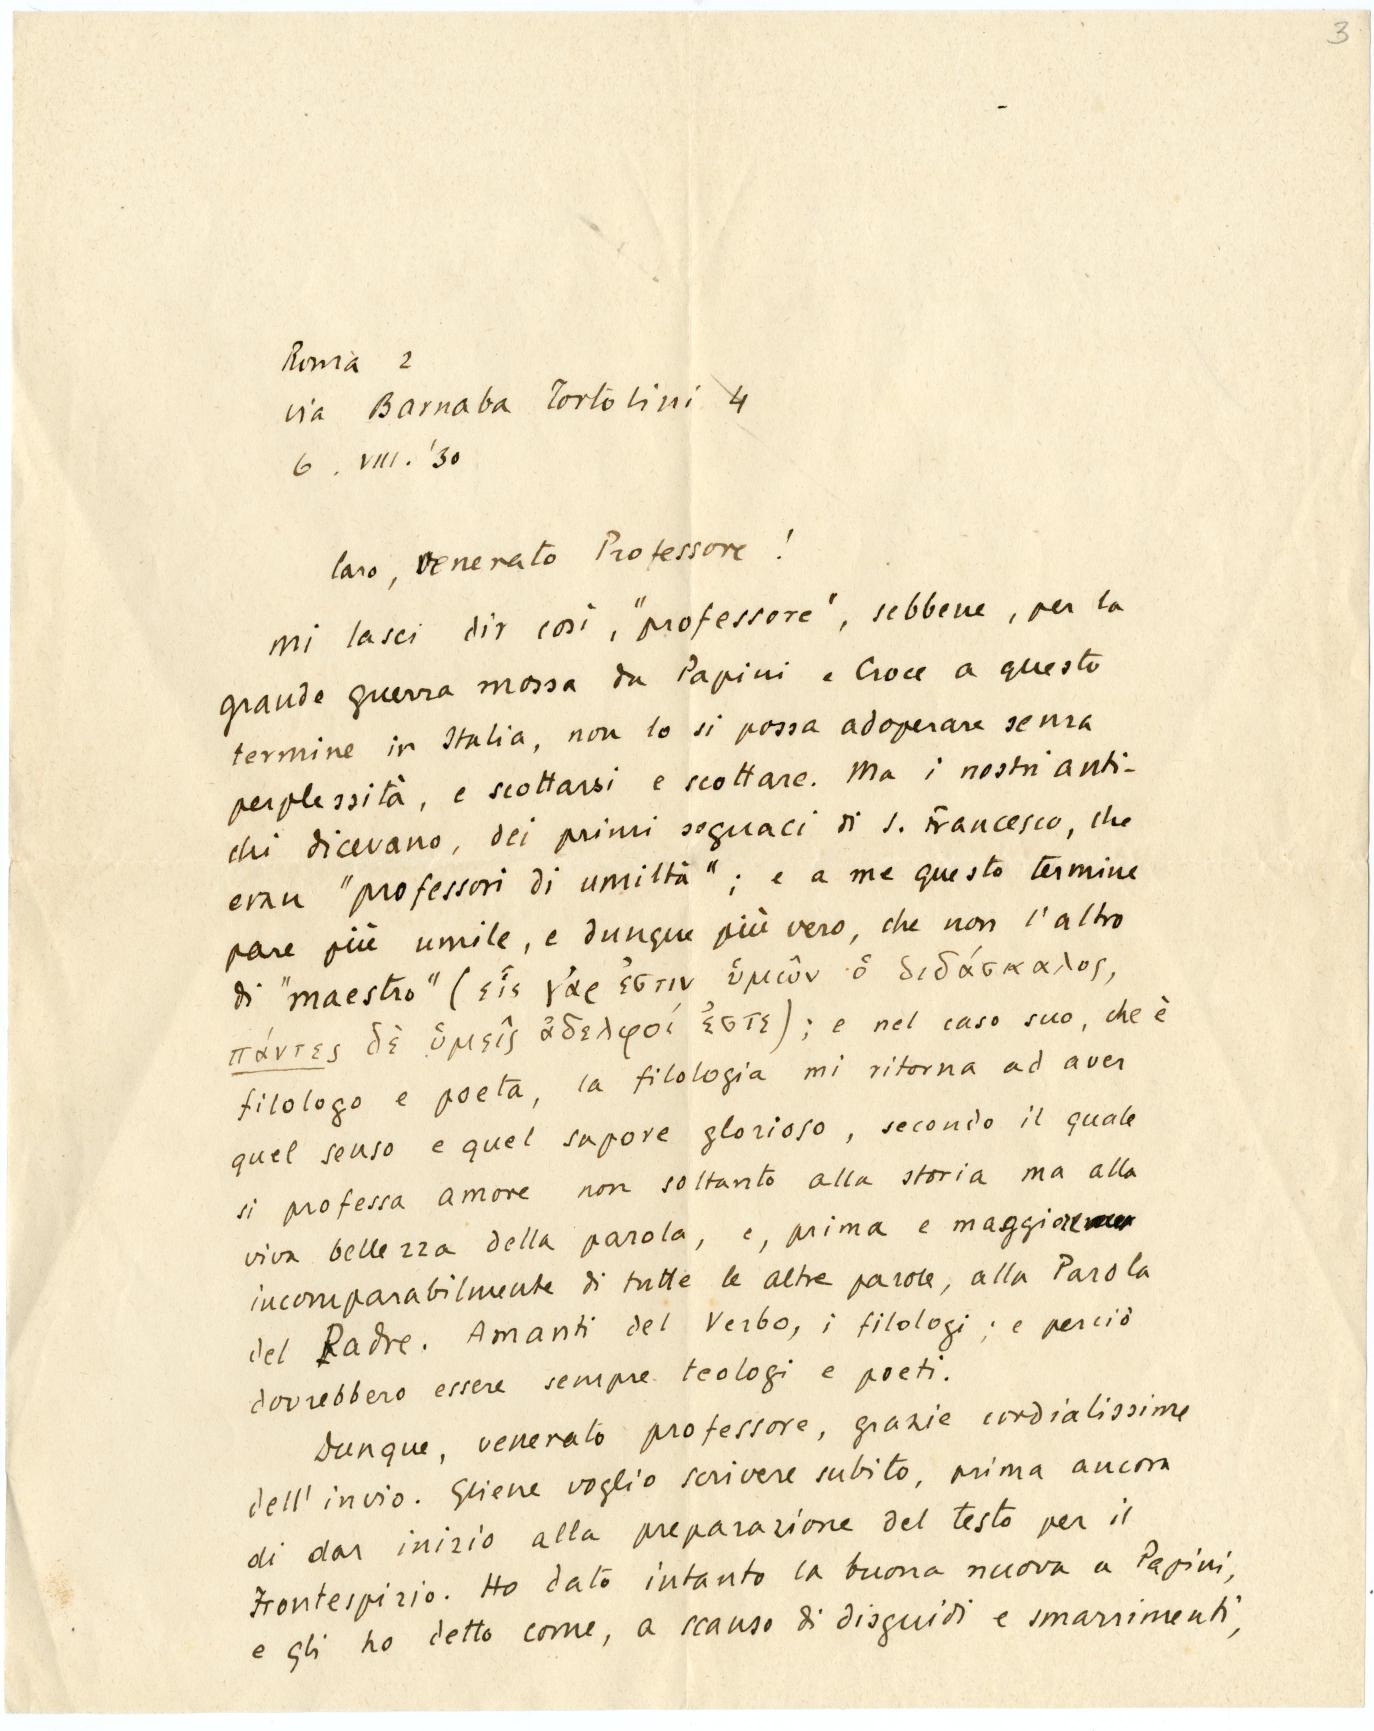 3
Roma 2
via Barnaba Tortolini 4
6. VIII. '30
Caro, venerato Professore!
Mi lasci dir così, "professore", sebbene, per la
grande guerra mossa da Papini e Croce a questo
termine in Italia, non lo si possa adoperare senza
perplessità, e scottarsi e scottare. Ma i nostri anti-
chi dicevano, dei primi seguaci di S. Francesco, che
eran "professori di umiltà"; e a me questo termine
pare più umile, e dunque più vero, che non l'altro
di "maestro" (εἷς γάρ ἐστιν ὑμῶν ὁ διδάσκαλος,
πάντες δὲ ὑμεῖς ἀδελφοί ἐστε); e nel caso suo, che è
filologo e poeta, la filologia mi ritorna ad aver
quel senso e quel sapore glorioso, secondo il quale
si professa amore non soltanto alla storia ma alla
viva bellezza della parola, e, prima e maggior
incomparabilmente di tutte le altre parole, alla Parola
del Padre. Amanti del Verbo, i filologi; e perciò
dovrebbero essere sempre teologi e poeti.
Dunque, venerato professore, grazie cordialissime
dell'invio. Gliene voglio scrivere subito, prima ancora
di dar inizio alla preparazione del testo per il
Frontespizio. Ho dato intanto la buona nuova a Papini,
e gli ho detto come, a scanso di disguidi e smarrimenti,